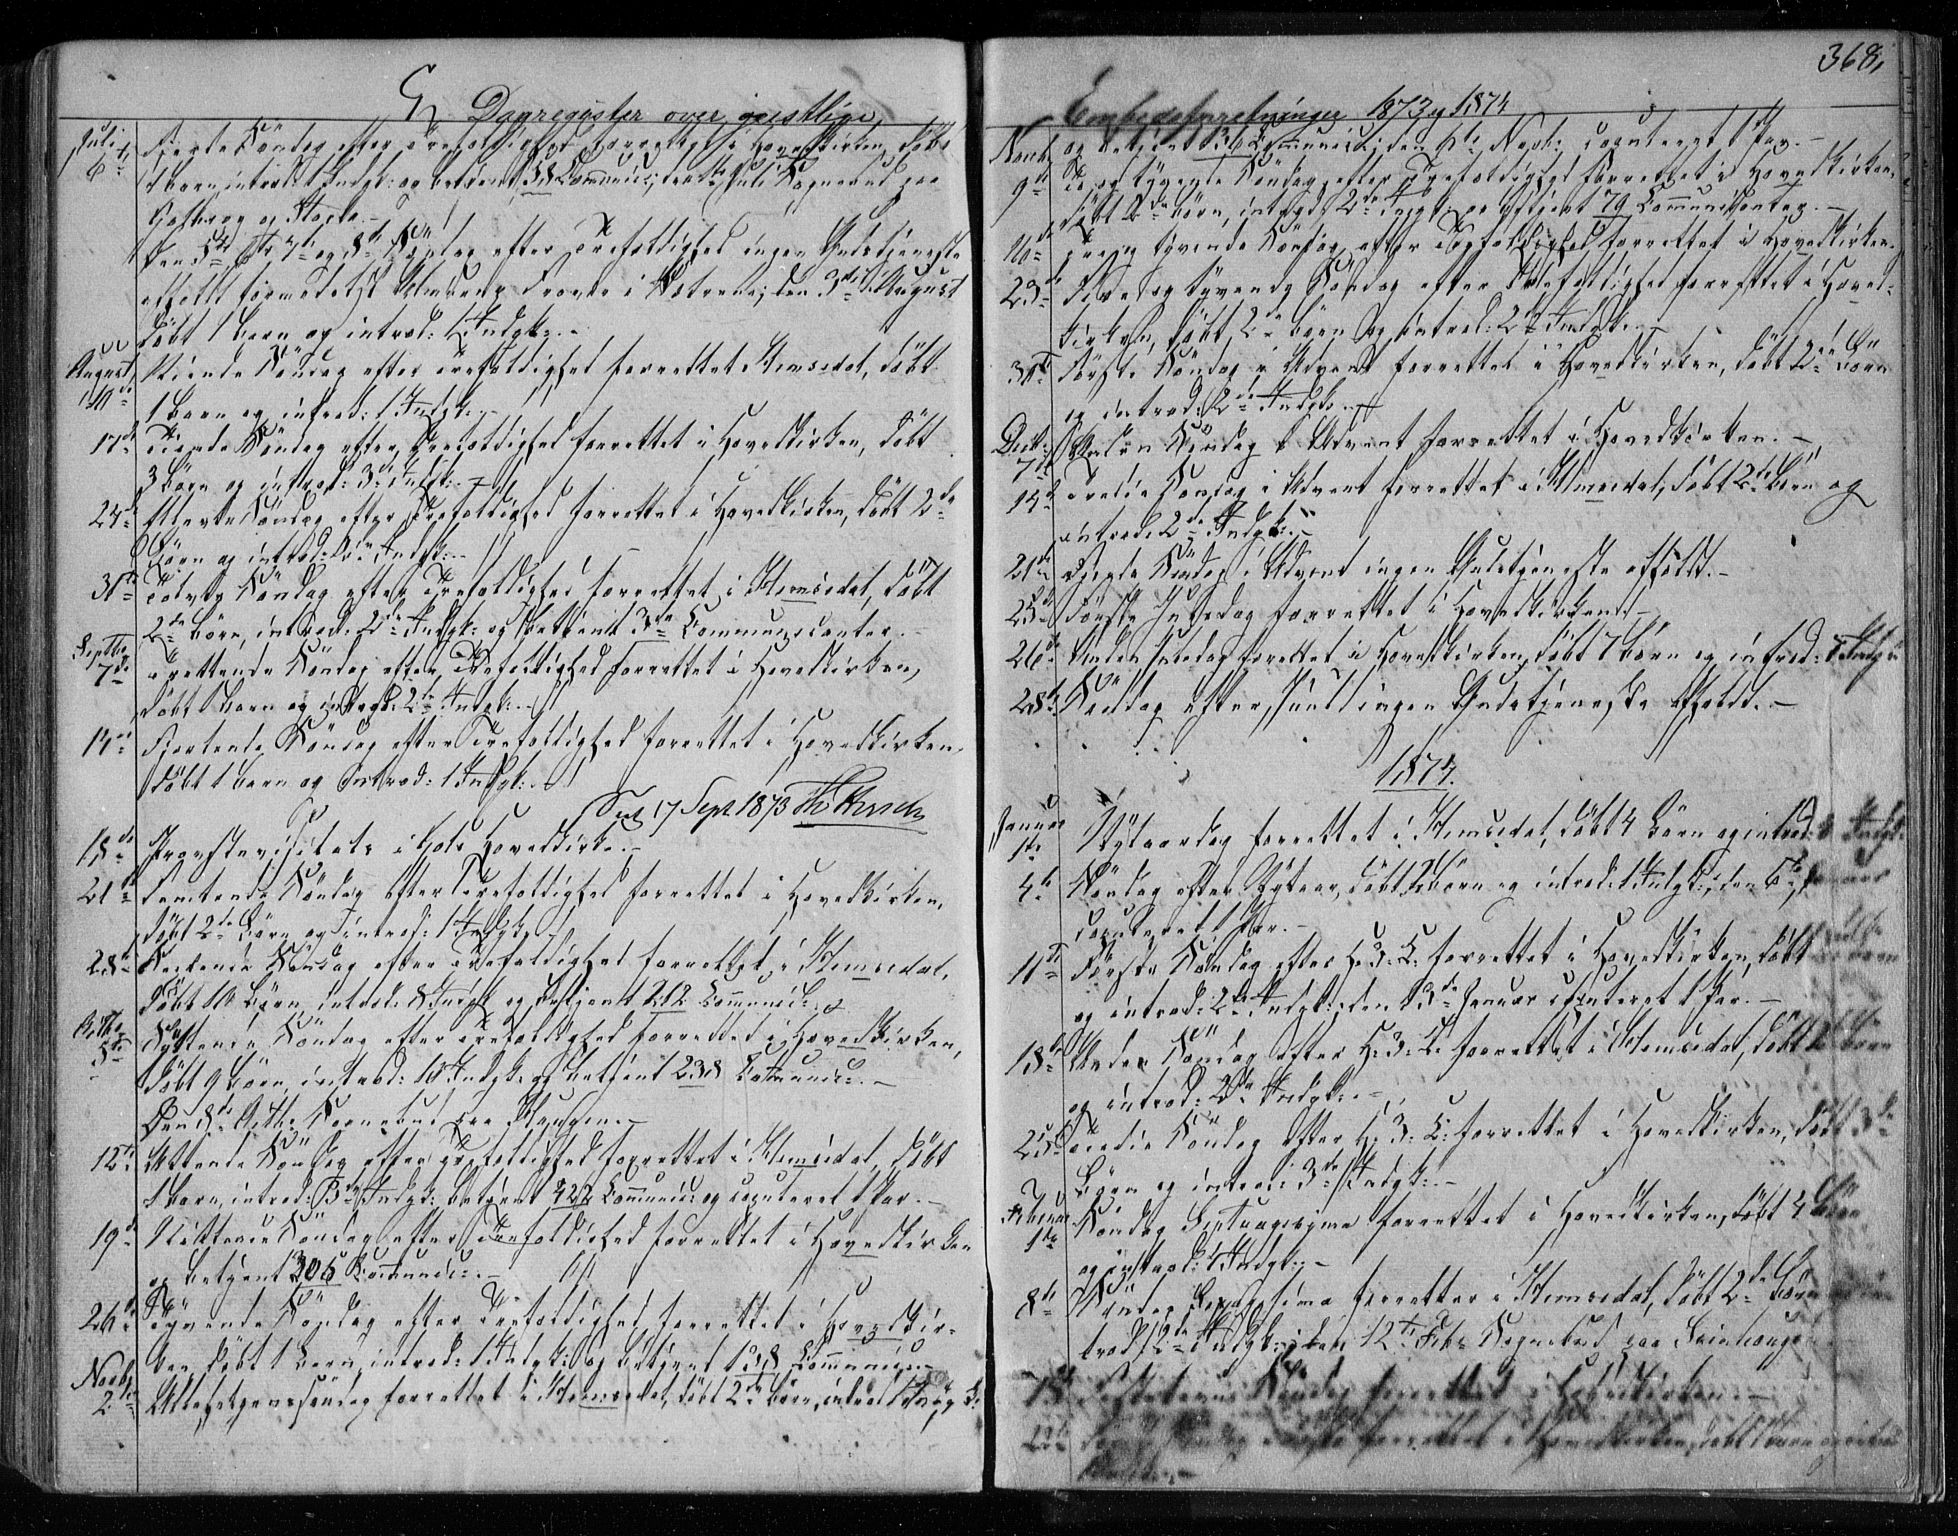 G Dagregister over geistlige
Juli 6te Fjerde Søndag efter Trefoldighed forrettet i Hovedkirken, døbt
1 barn, introd: 1 Indgk: og betjent 38 Communic: den Juli Sognebud paa
og
Den 5te, 6te, 7de og 8de Søndag efter Trefoldighed ingen Gudstjeneste
afholdt formedelst den 3de August
døbt 1 barn og introd: 1 Indgk: –
August 10de Niende Søndag efter Trefoldighed forrettet i Hemsedal, døbt
1 barn og introd: 1 Indgk: –
17de Tiende Søndag efter Trefoldighed forrettet i Hovedkirken, døbt
3 børn og introd: 3de Indgk: –
24de Ellevte Søndag efter Trefoldighed forrettet i Hovedkirken, døbt 2de
Børn og introd: Indgk: –
31te Tolvte Søndag efter Trefoldighed forrettet i Hemsedal, døbt
2de børn, introd: 2de Indgk: og betjent 3de Communicanter. –
Septbr 7de Trettende Søndag efter Trefoldighed forrettet i Hovedkirken,
døbt 1 barn og introd: 2de Indgk: –
14de Fjortende Søndag efter Trefoldighed forrettet i Hovedkirken
døbt 1 barn og Introd: 1 Indgk: –
17 Sept 1873
18de Provstevisitats i Gols Hovedkirke. –
21de Femtende Søndag efter Trefoldighed forrettet i Hovedkirken,
døbt 2de Børn og introd: 1 Indgk. –
28de Sextende Søndag efter Trefoldighed forrettet i Hemsedal,
døbt 10 børn, introd: 8 Indgk og betjent 212 Communic:
Octbr 5te Syttende Søndag efter Trefoldighed forrettet i Hovedkirken,
døbt 9 børn, introd: 10 Indgk: og betjent 238 Communic: –
Den 8de Octbr: Sognebud paa
12te Attende Søndag efter Trefoldighed forrettet i Hemsedal, døbt
1 barn, introd: 3de Indgk: betjent 422 Communic: og copuleret 1 Par. –
19de Nittende Søndag efter Trefoldighed forrettet i Hovedkirken
og betjent 306 Communic: –
26de Tyvende Søndag efter Trefoldighed forrettet i Hovedkir-
ken, døbt 1 barn, introd: 1 Indgk: og betjent 138 Communic: –
Novbr 2de Allehelgenssøndag forrettet i Hemsedal, døbt 2de børn, introd 1 Indgk:
368,
Embedsforretninger 1873 og 1874
Novbr og betjent 36 Communic: den 6te Novb: copuleret 1 Par. –
9de To og tyvende Søndag efter Trefoldighed forrettet i Hovedkirken,
døbt 2de børn, introd: 2de Indgk: og betjent 79 Communicanter. –
16de Tre og tyvende Søndag efter Trefoldighed forrettet i Hovedkirken.
23de Fire og tyvende Søndag efter Trefoldighed forrettet i Hoved-
kirken, døbt 2de børn og introd: 2de Indgk: –
30te Første Søndag i Advent forrettet i Hovedkirken, døbt 2de Børn
og introd: 2de Indgk: –
Decbr: 7de Anden Søndag i Advent forrettet i Hovedkirken. –
14de Tredie Søndag i Advent forrettet i Hemsedal, døbt 2de børn og
introd: 2de Indgk: –
21de Fjerde Søndag i Advent ingen Gudstjeneste afholdt. –
25de Første Juledag forrettet i Hovedkirken. –
26de Anden Juledag forrettet i Hovedkirken, døbt 7 børn og introd: Indgk:
28de Søndag efter Juul ingen Gudstjeneste afholdt. –
1874.
Januar 1te Nytaarsdag forrettet i Hemsedal, døbt 4 Børn og introd: Indgk:
4de Søndag efter Nytaar, døbt børn og introd: 1 Indgk:, den 6te Januar
copuleret 1 Par. –
11te Første Søndag efter H. 3. K. forrettet i Hovedkirken, døbt børn
og introd: 2de Indgk: den 13de Januar copuleret 1 Par. –
18de Anden Søndag efter H. 3. K. forrettet i Hemsedal, døbt børn
og introd: 2de Indgk: –
25de Tredie Søndag efter H. 3. K. forrettet i Hovedkirken, døbt 3de
Børn og introd: 3de Indgk: –
Februar 1te Søndag Septuagesima forrettet i Hovedkirken, døbt 4 Børn
og introd: 4 Indgk: –
8de Søndag Sexagesima forrettet i Hemsedal, døbt 2de Børn in-
trod: 2de Indgk: den 12te Feb: Sognebud paa
15de Fastelavns Søndag forrettet i Hovedkirken. –
22de Søndag i Faste forrettet i Hovedkirken, døbt 1 barn og introd